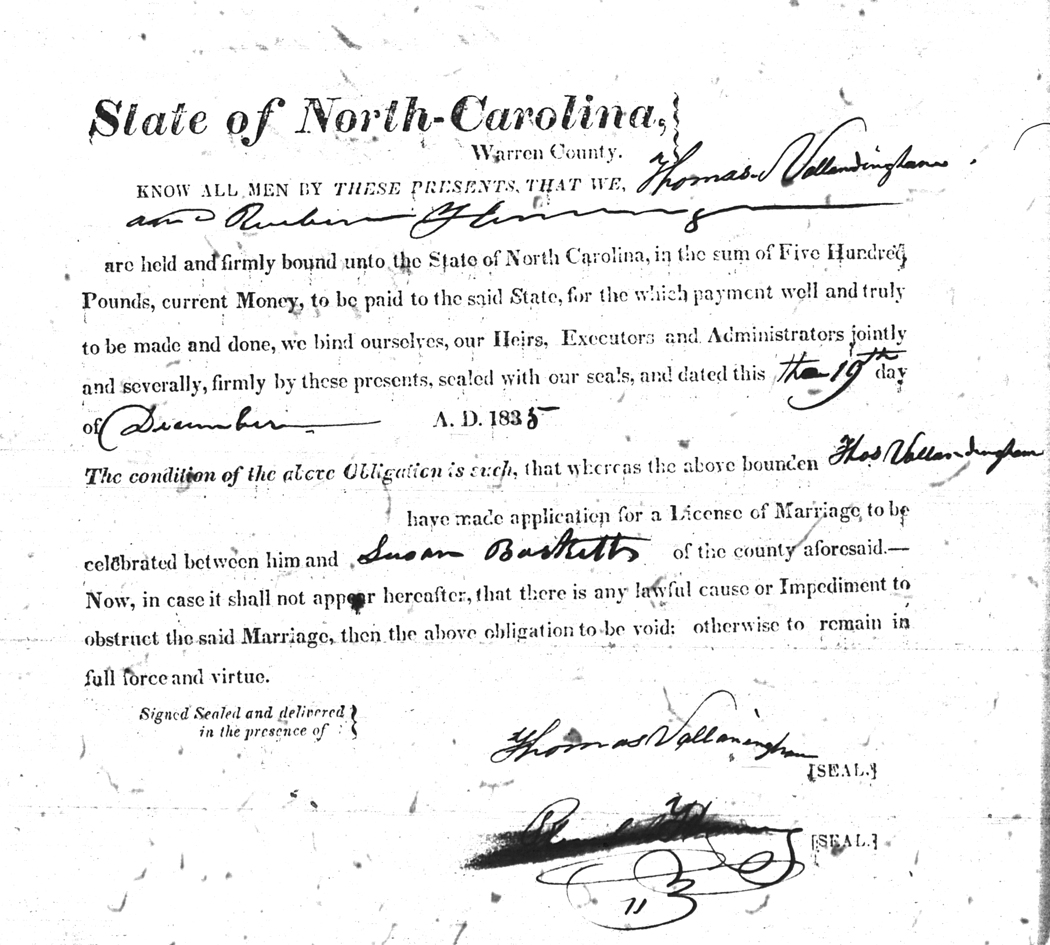 State of North-Carolina,
Warren County.
KNOW ALL MEN BY THESE PRESENTS, THAT WE, Thomas Vallandingham
and Reuben Fleming
are held and firmly bound unto the State of North Carolina, in the sum of Five Hundred
Pounds, current Money, to be paid to the said State, for the which payment well and truly
to be made and done, we bind ourselves, our Heirs, Executors and Administrators jointly
and severally, firmly by these presents, sealed with our seals, and dated this the 19th day
of December A. D. 1835
The condition of the above Obligation is such, that whereas the above bounden Thos Vallandingham
have made application for a License of Marriage, to be
celebrated between him and Susan Basketts of the county aforesaid.—
Now, in case it shall not appear hereafter, that there is any lawful cause or Impediment to
obstruct the said Marriage, then the above obligation to be void: otherwise to remain in
full force and virtue.
Signed Sealed and delivered
in the presence of
Thomas Vallaningham
[SEAL.]
Fleming
[SEAL.]